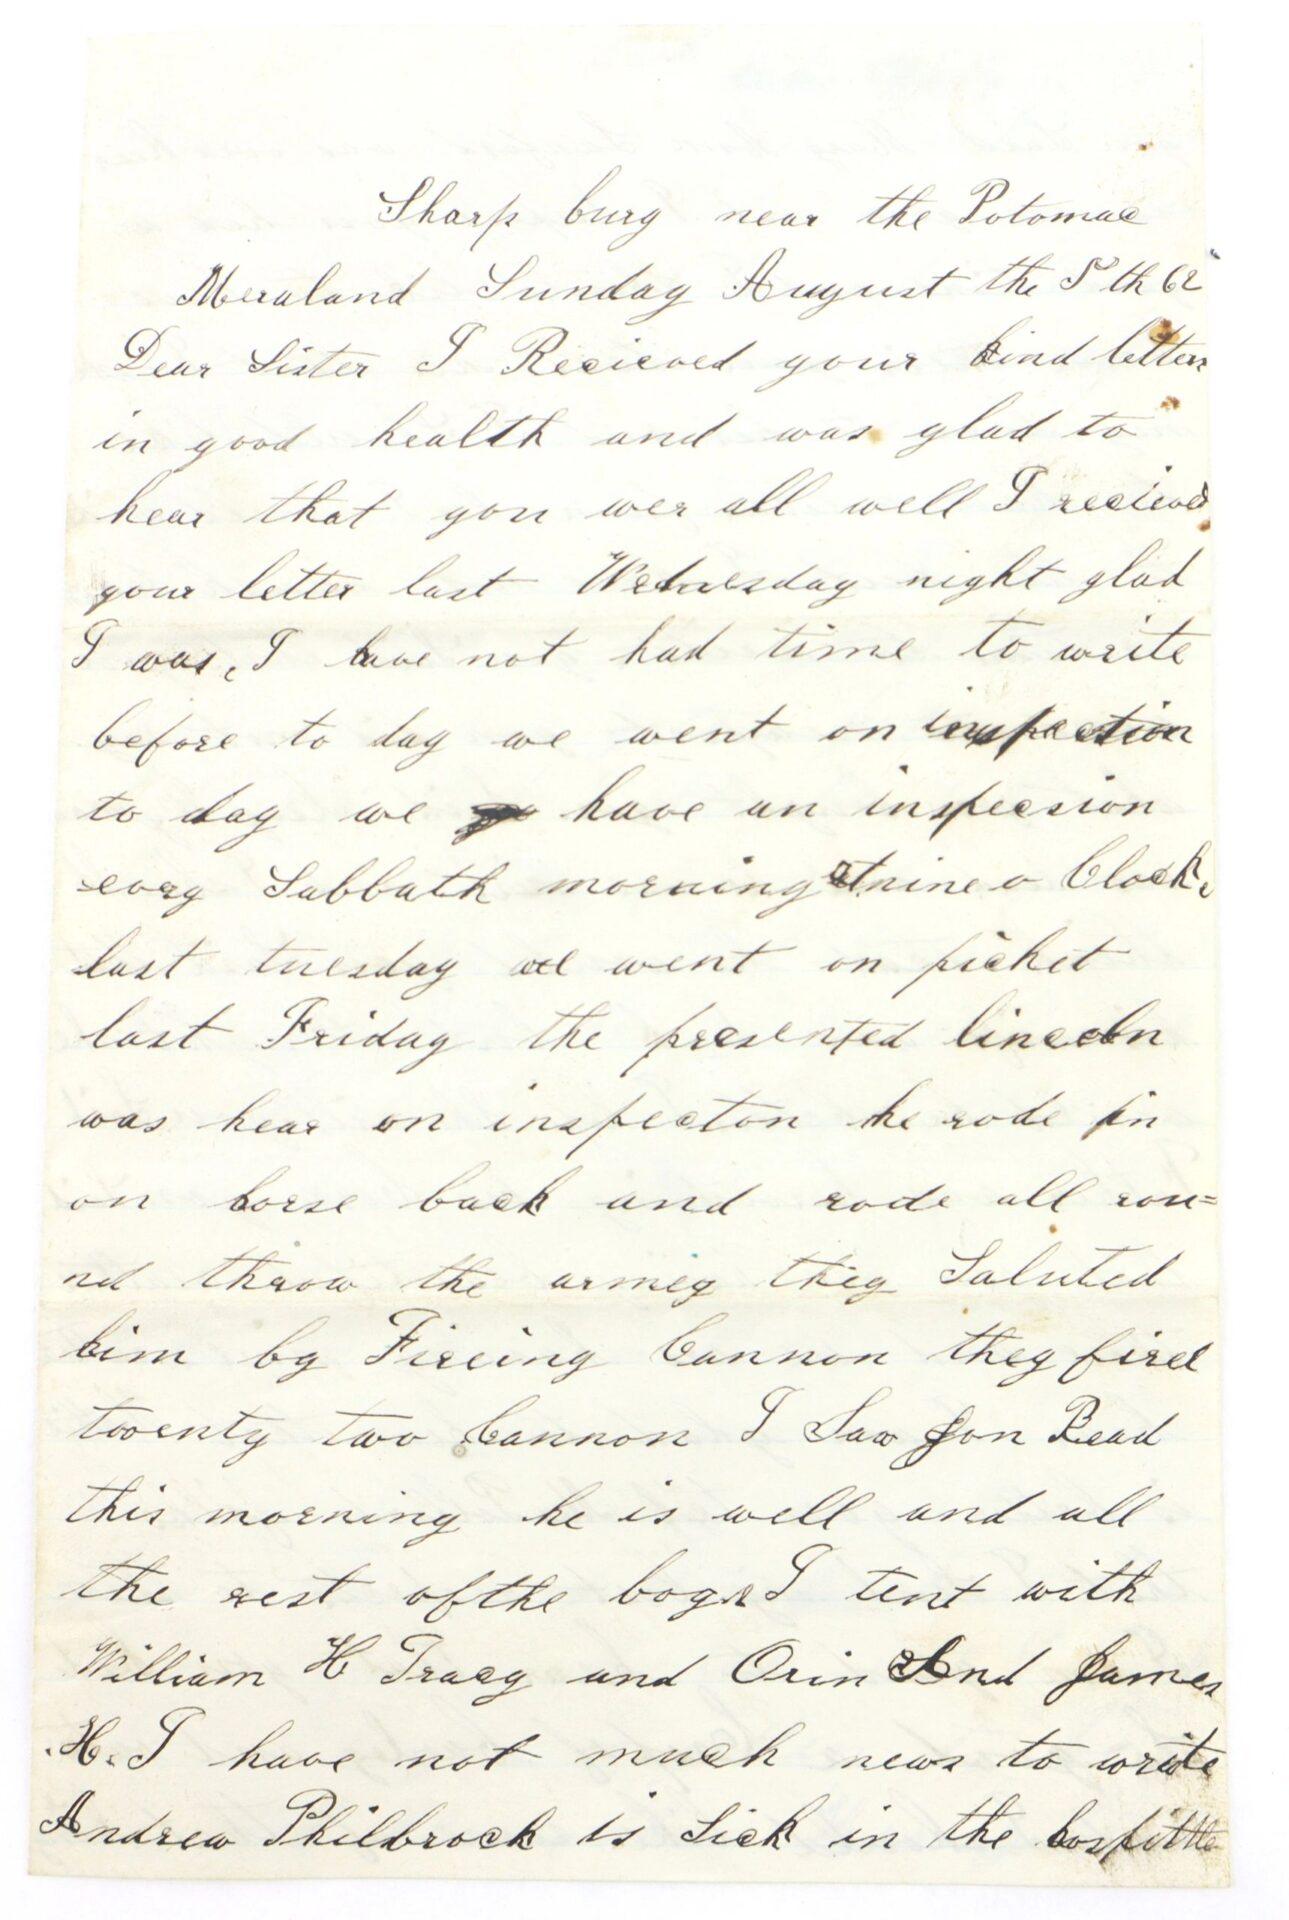 Sharps burg near the Potomac
Meraland Sunday August the 5th 62
Dear Sister I Recieved your kind letter
in good health and was glad to
hear that you wer all well I recieved
your letter last Wednesday night glad
I was, I have not had time to write
before to day we went on inspection
to day we have an inspecsion
every Sabbath morning at nine o Clock,
last tuesday we went on picket
last Friday the presented lincoln
was hear on inspecton he rode in
on horse back and rode all rou=
nd throw the armey thiey Saluted
him by Fireing Cannon they fired
twenty two Cannon I Saw Jon Read
this morning he is well and all
the rest ofthe boys I tent with
William H Tracy and Orin And James
H. I have not much news to write
Andrew Philbrock is Sick in the hospittle